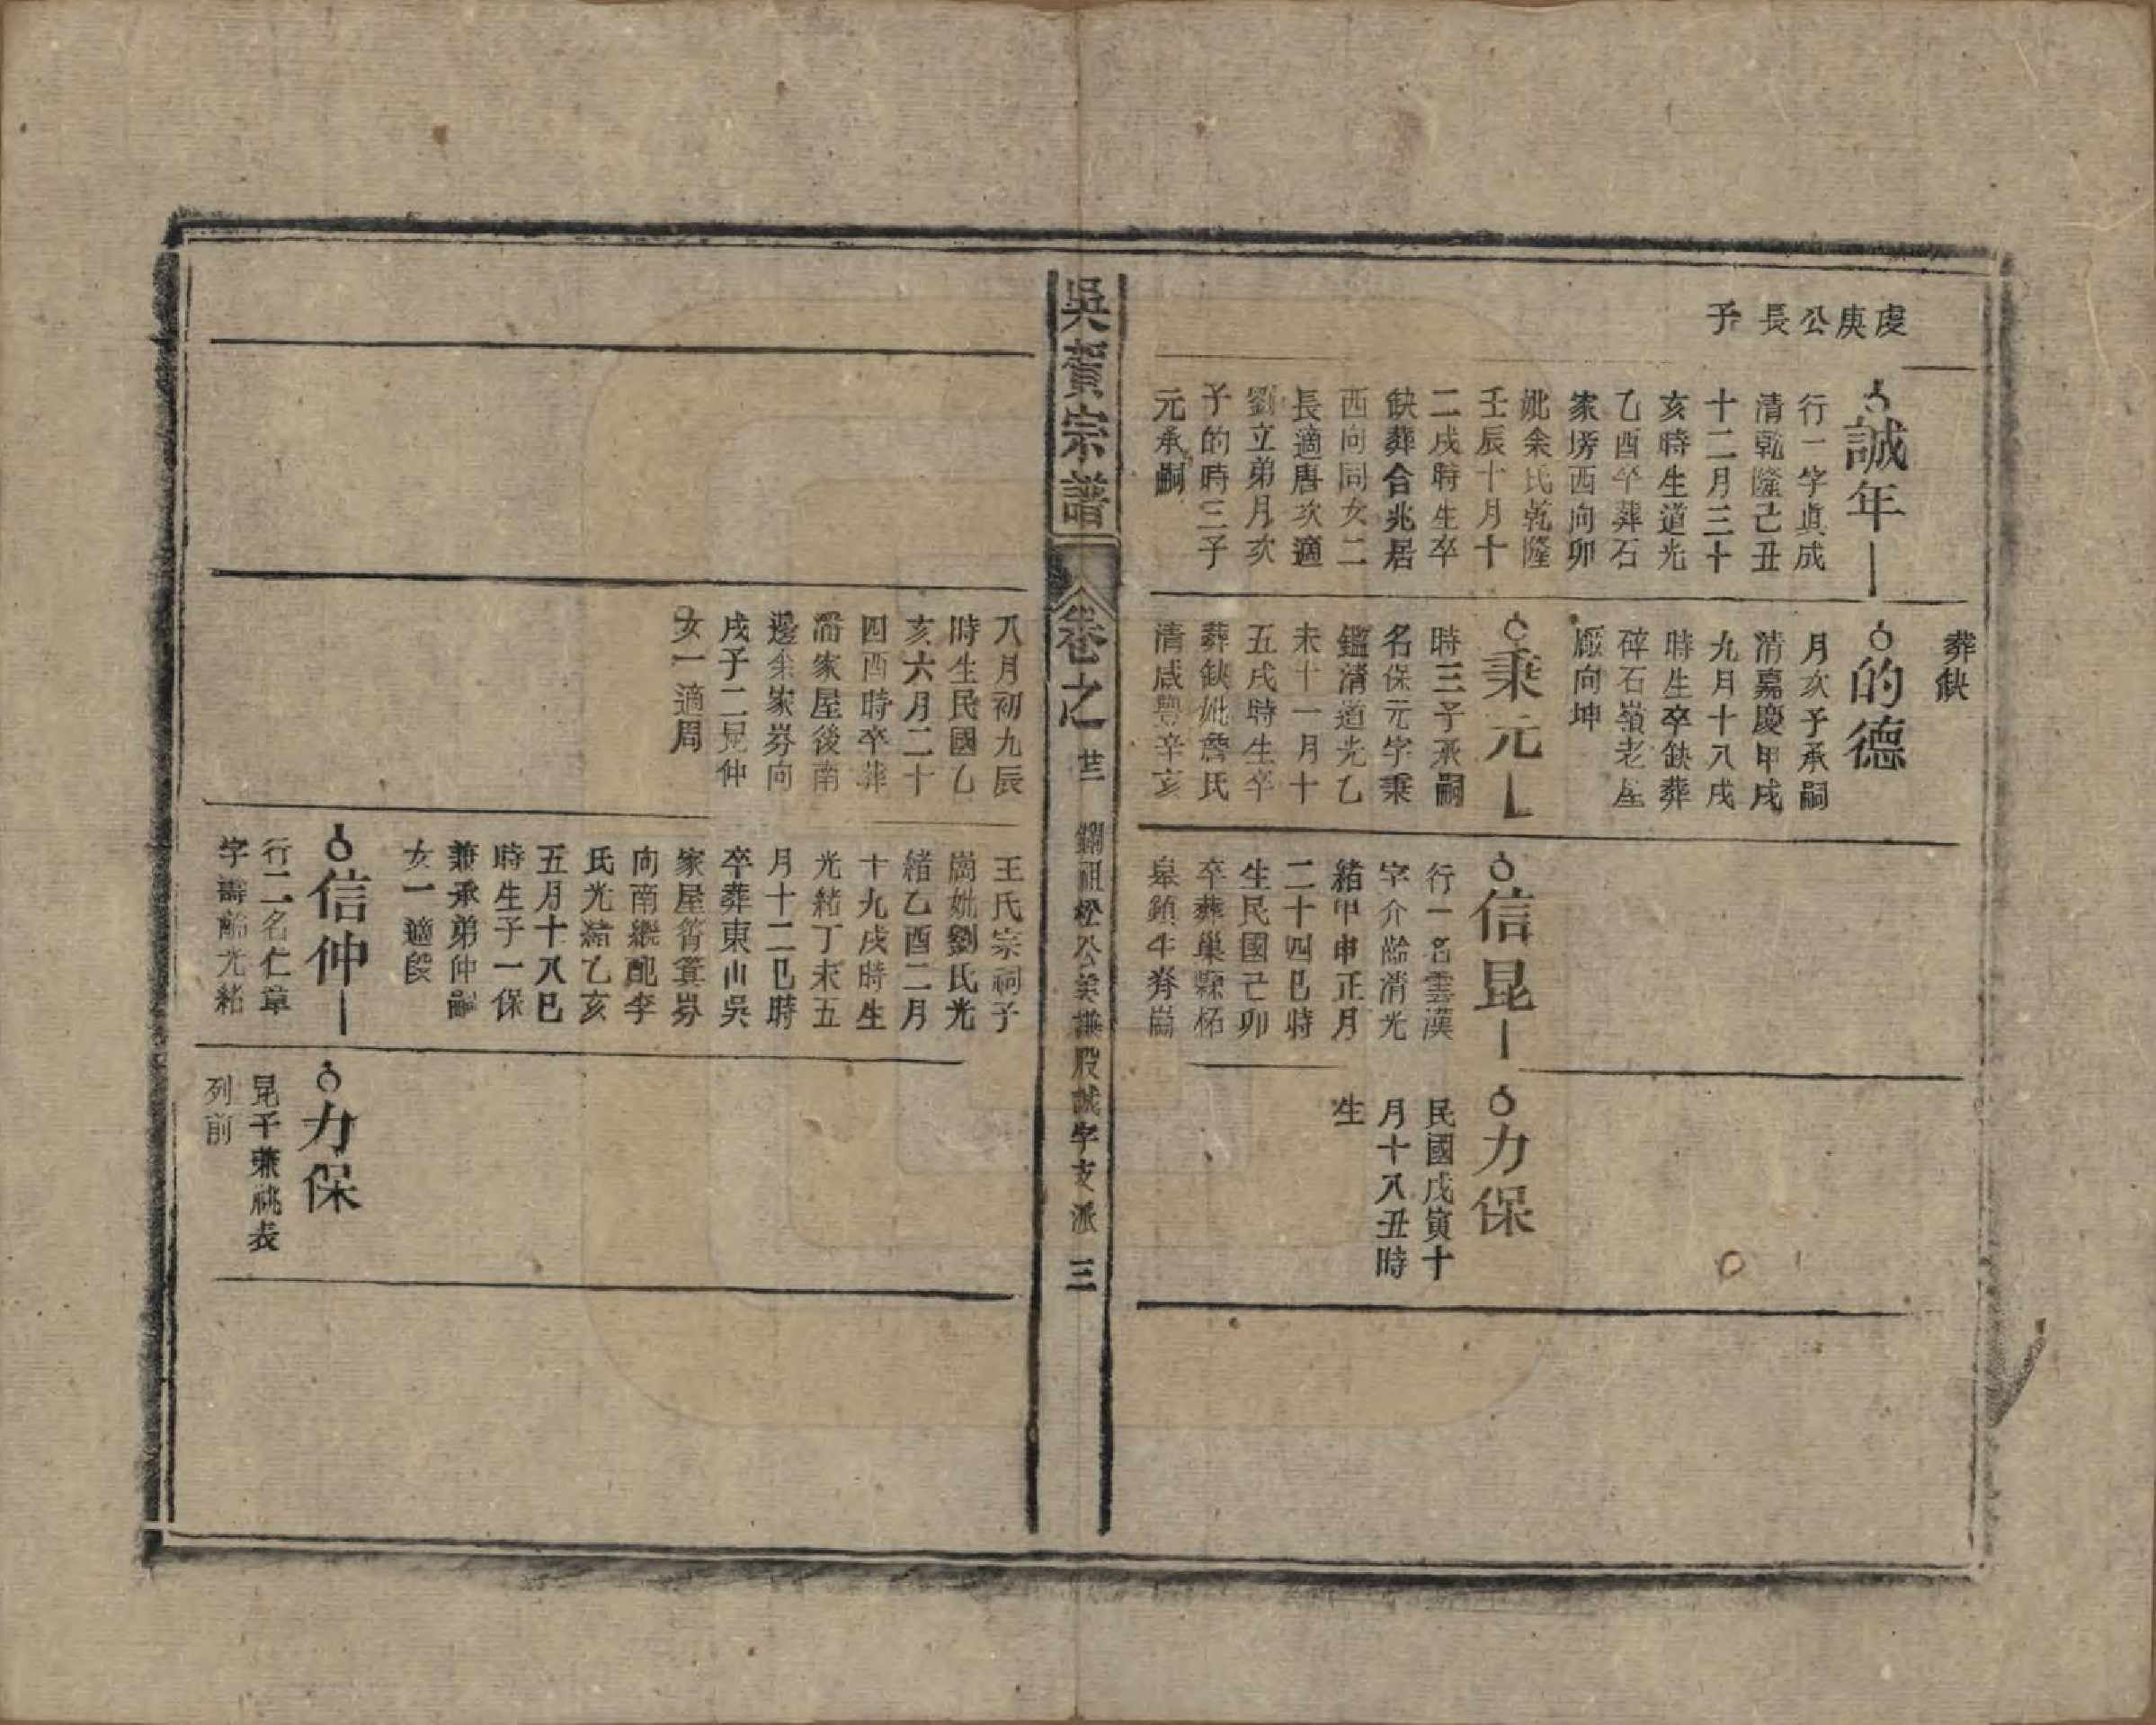 虔庚公長子
誠年
行一字真成
清乾隆己丑
十二月三十
亥時生道光
乙酉卒葬石
家塝西向卯
妣余氏乾隆
壬辰十月十
二戌時生卒
缺葬合兆居
西向同女二
長適唐次適
劉立弟月次
子的時三子
元承嗣
葬缺
的德
月次子承嗣
清嘉慶甲戌
九月十八戌
時生卒缺葬
碎石嶺老屋
廠向坤
秉元
時三子承嗣
名保元字秉
鑑清道光乙
未十一月十
五戌時生卒
葬缺妣詹氏
清咸豐辛亥
信昆
行一名雲漢
字介齡清光
緒甲申正月
二十四巳時
生民國己卯
卒葬巢縣柘
皋鎮牛脊崗
力保
民國戊寅十
月十八丑時
生
吳賀宗譜
卷之
廿三
鋼祖松公美謙股誠字支派
三
八月初九辰
時生民國乙
亥六月二十
四酉時卒葬
潘家屋後南
邊余家嵏向
戌子二昆仲
女一適周
王氏宗祠子
崗妣劉氏光
緒乙酉二月
十九戌時生
光緒丁未五
月十二巳時
卒葬東山吳
家屋筲箕嵏
向南繼配李
氏光緒乙亥
五月十八巳
時生子一保
兼承弟仲嗣
女一適段
信仲
行二名仁章
字壽齡光緒
力保
昆子兼祧表
列前